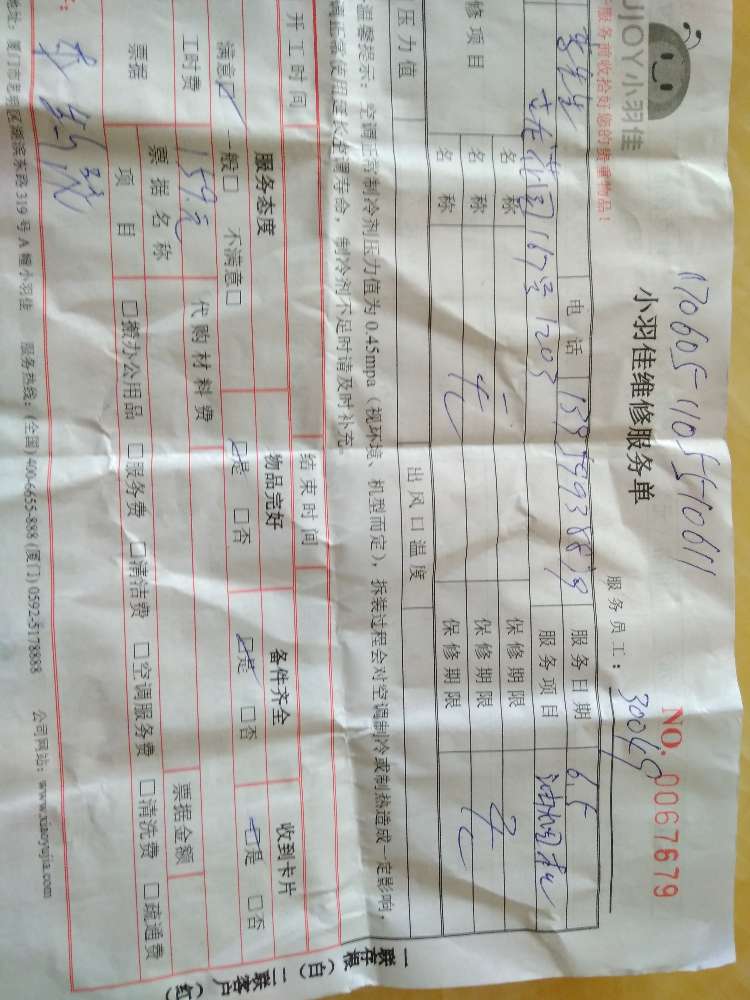 UJOY小羽佳
服务前收拾好您的贵重物品！
17060511055510611
小羽佳维修服务单
服务员工：30045
NO. 0067679
李先生
电话
服务日期
6.5
167号1203
服务项目
油烟机
修项目
名称
保修期限
名称
无
保修期限
无
名称
保修期限
压力值
出风口温度
温馨提示：空调正常制冷剂压力值为0.45mpa（视环境、机型而定），拆装过程会对空调制冷或制热造成一定影响，
调正常使用延长空调寿命，制冷剂不足时请及时补充。
开工时间
结束时间
服务态度
物品完好
备件齐全
收到卡片
满意☑ 一般□ 不满意□
☑是 □否
☑是 □否
☑是 □否
工时费
159.元
代购材料费
票据
票据名称
票据金额
项目
□搬办公用品 □服务费 □清洁费 □空调服务费 □清洗费 □疏通费
地址：厦门市思明区湖滨东路319号A幢小羽佳 服务热线：(全国) 400-6655-888 (厦门) 0592-5178888 公司网站：www.xiaoyujia.com
一联存根（白）二联客户（红）